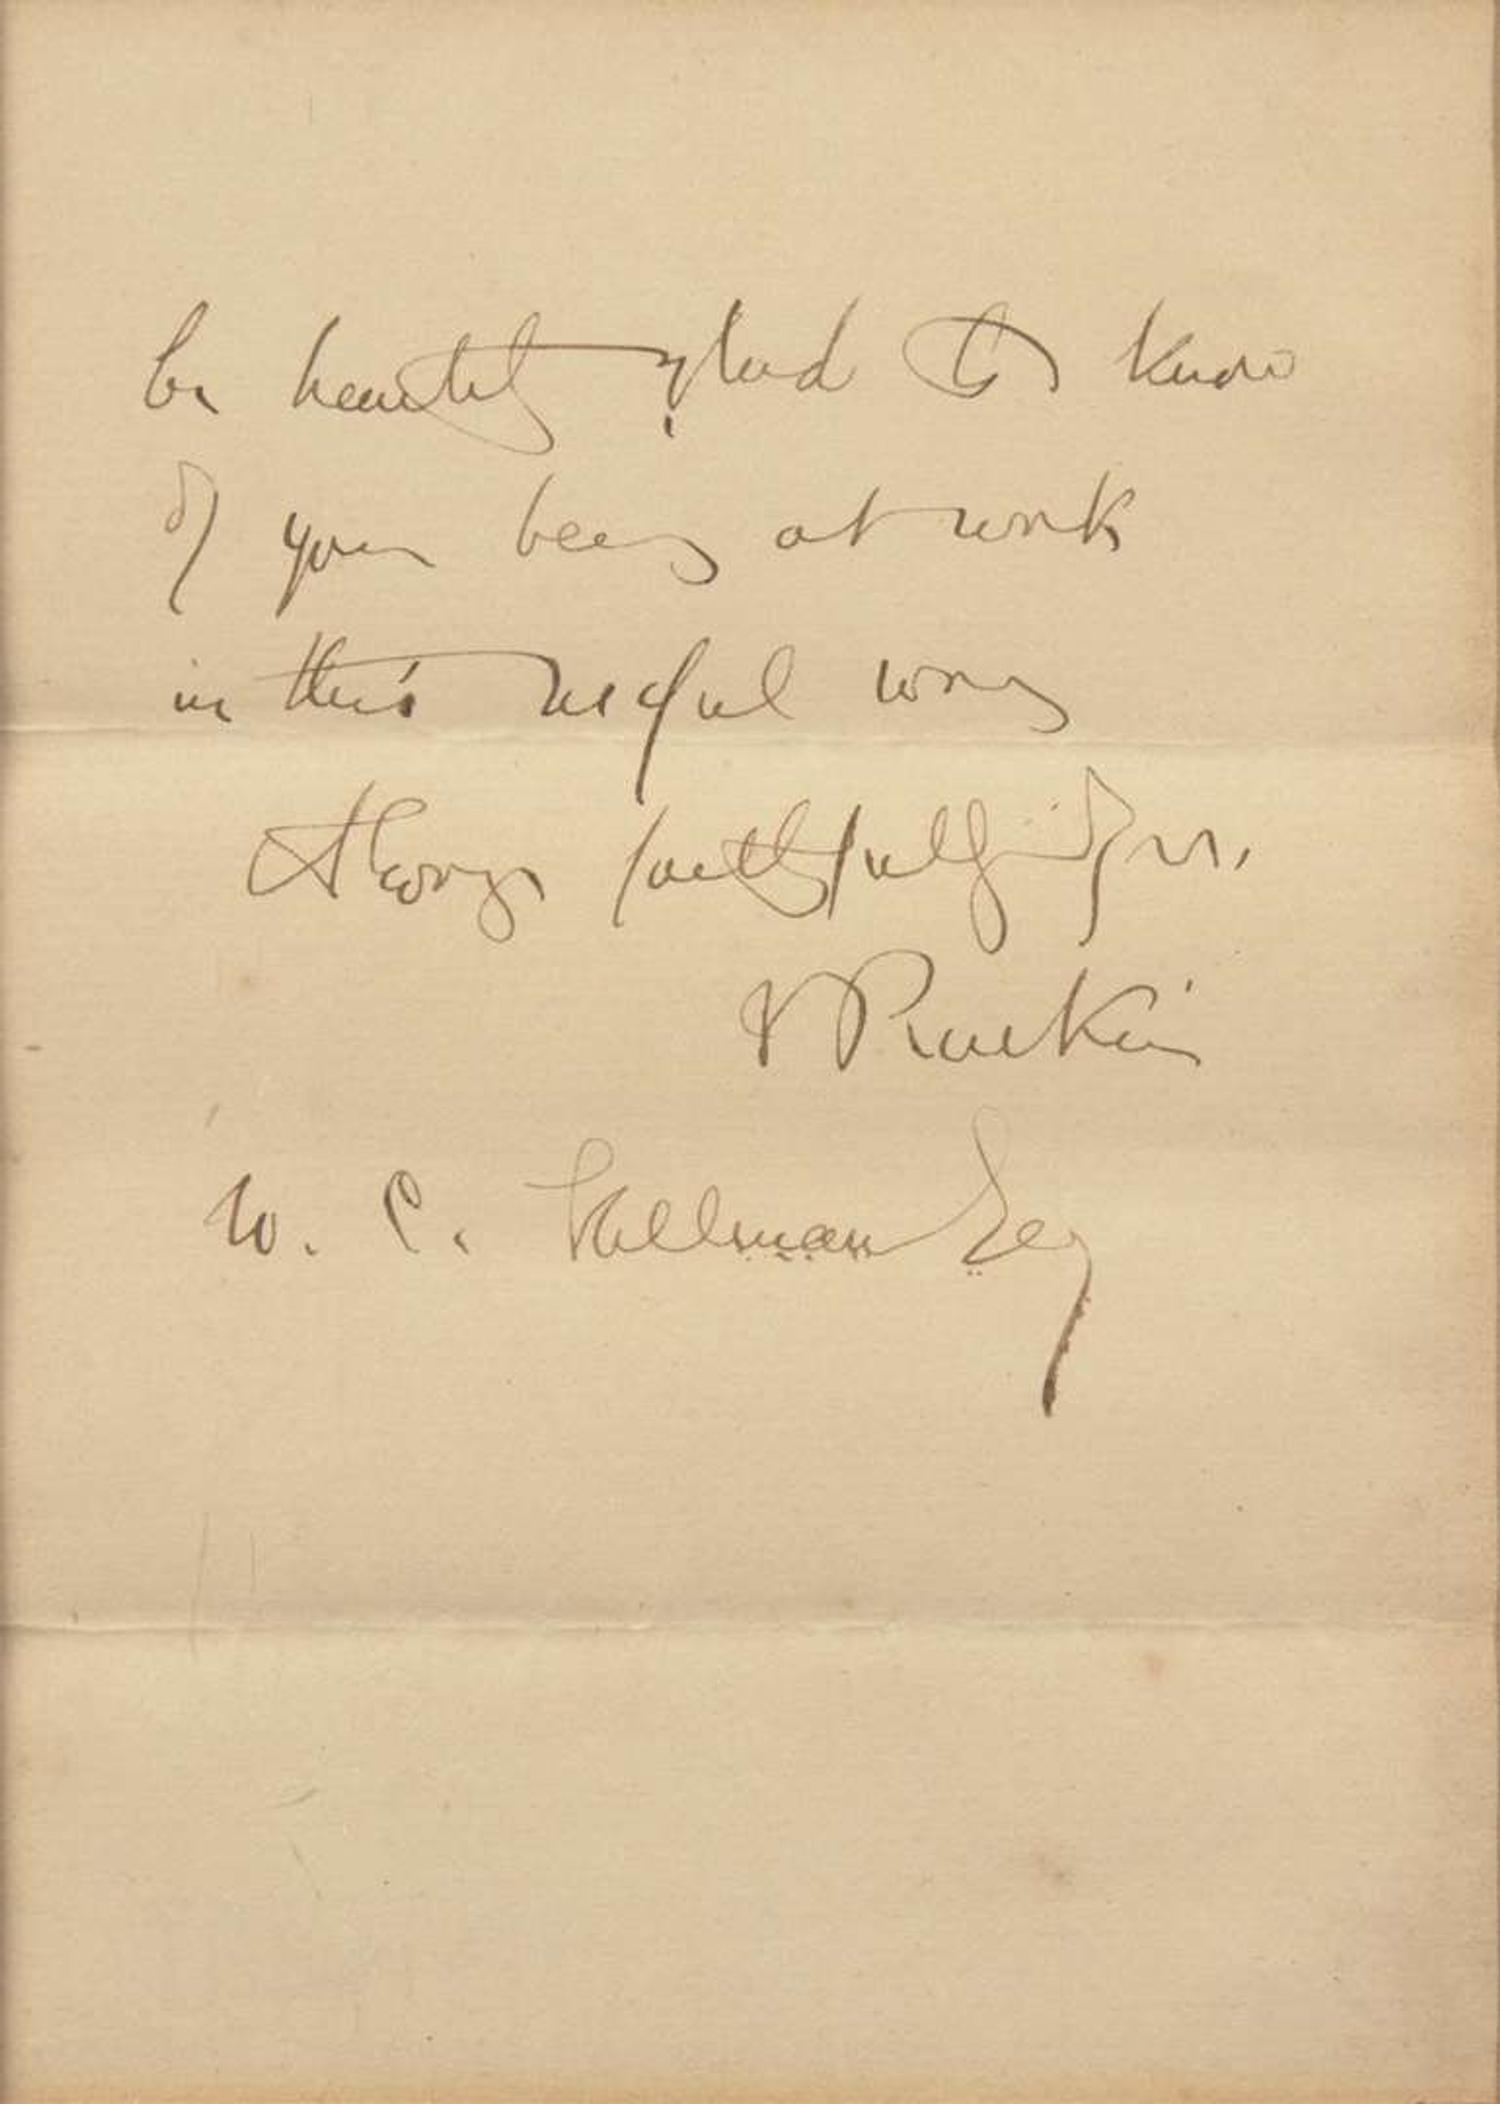 be heartily glad to know
of your being at work
in this useful way
Always faithfully Yrs.
J Ruskin
W. C. Esq